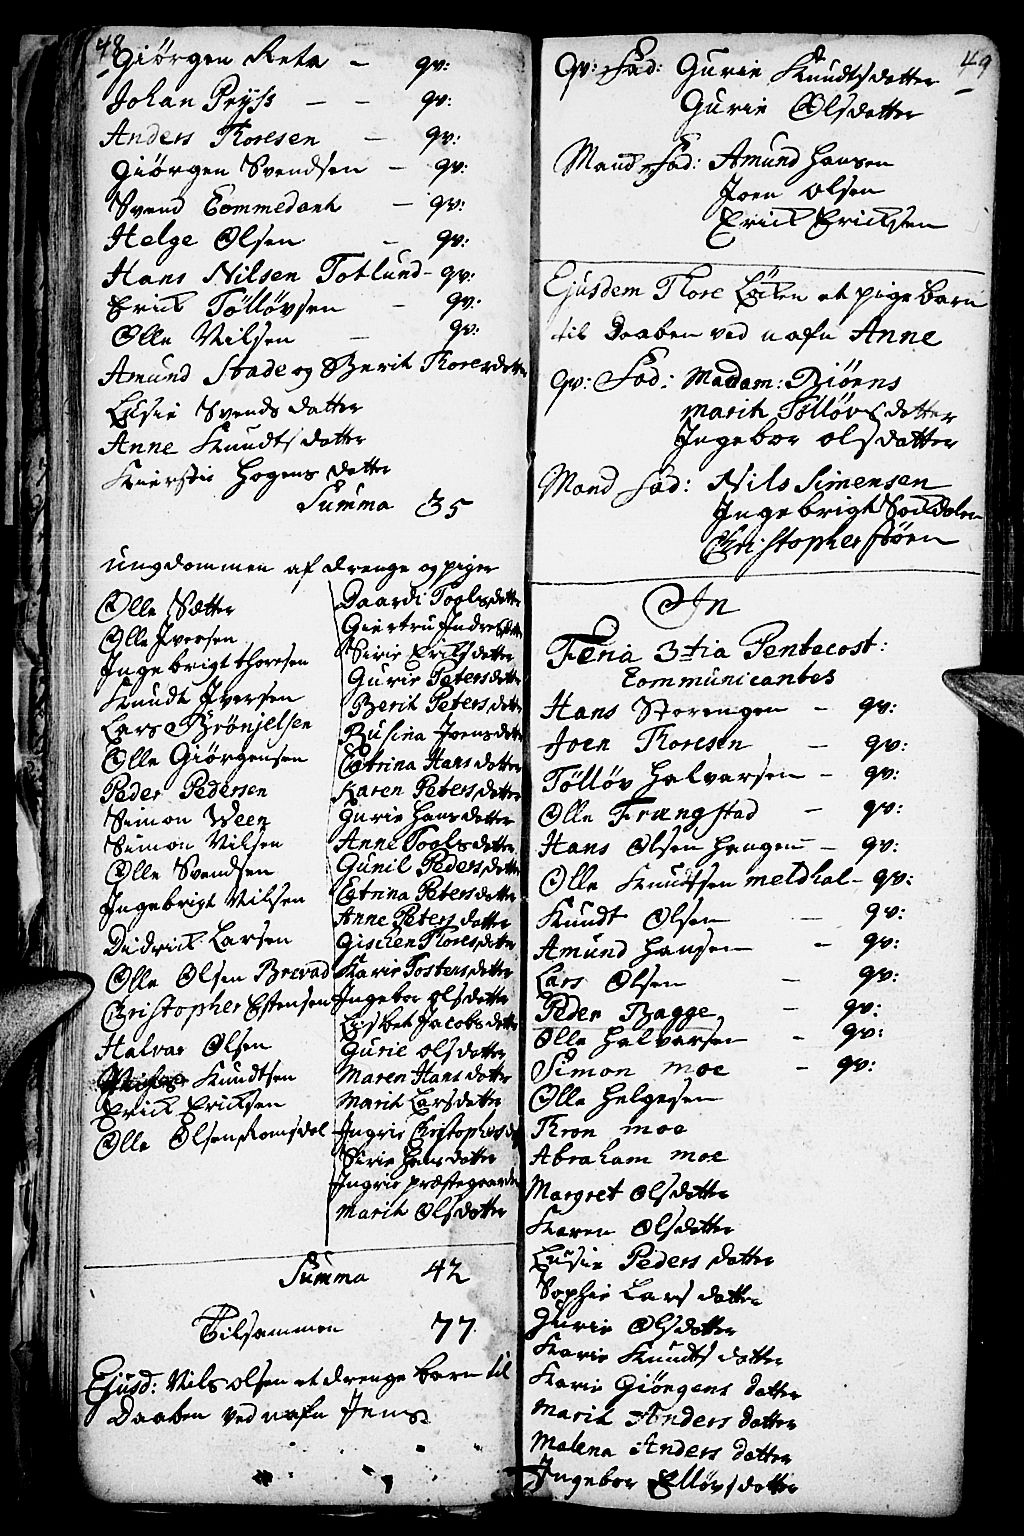 48
Giörgen Reta – qv:
Johan Pryss – – qv:
Anders Thoresen – qv:
Giörgen Svendsen – qv:
Svend Commedant – qv:
Helge Olsen – qv:
Hans Nilsen Totlund – qv:
Erick Töllövsen – qv:
Olle Nilsen – qv:
Amund Stade og Berit Thoresdatter
Lusie Svends datter
Anne Knudts datter
Kierstie Hogens datter
Summa 35
ungdommen af drenge og piger
Olle Sætter
Olle Iversen
Ingebrigt Thoresen
Knudt Iversen
Lars Brönjelsen
Olle Giörgensen
Peder Pedersen
Simon Ween
Simon Nilsen
Olle Svendsen
Ingebrigt Nilsen
Didrick Larsen
Olle Olsen Brevad
Christopher Estensen
Halvar Olsen
Knudtsen
Erick Ericksen
Olle Olsen Romsdal
Daardi Poolsdatter
Giertru Indresdatter
Sirie Ericksdatter
Gurie Petersdatter
Berit Petersdatter
Rusina Joensdatter
Catrina Hansdatter
Karen Petersdatter
Gurie Hansdatter
Anne Poolsdatter
Gunil Pedersdatter
Catrina Petersdatter
Anne Petersdatter
Gischen Thoresdatter
Karie Tostensdatter
Ingebor olsdatter
Lisbet Jacobsdatter
Gurie olsdatter
Maren Hansdatter
Marit Larsdatter
Ingrie Christophersd
Sirie Hansdatter
Ingrie præstegaarden
Marit Olsdatter
Summa 42
Tilsammen 77
Ejusd: Nils olsen et drenge barn til
Daaben ved nafn Jens
49
Qv: Fad: Gurie Knudtsdatter
Gurie Olsdatter
Mand Fad: Amund Hansen
Joen Olsen
Erick Ericksen
Ejusdem Thore Löcken et pige barn
til Daaben ved nafn Anne
qv: Fad: Madam: Biörns
Marit Töllövsdatter
Ingebor olsdatter
Mand Fad: Nils Simensen
Ingebrigt Soldalen
Christopher Stören
In
Feria 3tia Pentecost:
Communicantes
Hans Storengen – qv:
Joen Thoresen – qv:
Töllöv Halvarsen – qv:
Olle Frængstad – qv:
Hans Olsen Haugen – qv:
Olle Knudtsen Meldhal – qv:
Knudt Olsen – qv:
Amund Hansen – qv:
Lars Olsen – qv:
Peder Bagge – qv:
Olle Halvarsen – qv:
Simon moe – qv:
Olle Helgesen
Thron moe
Abraham moe
Margret Olsdatter
Karen Olsdatter
Lusie Peders datter
Sophie Lars datter
Gurie Olsdatter
Karie Knudts datter
Karie Giörgens datter
Marit Anders datter
Malena Anders datter
Ingebor Ellövsdatter